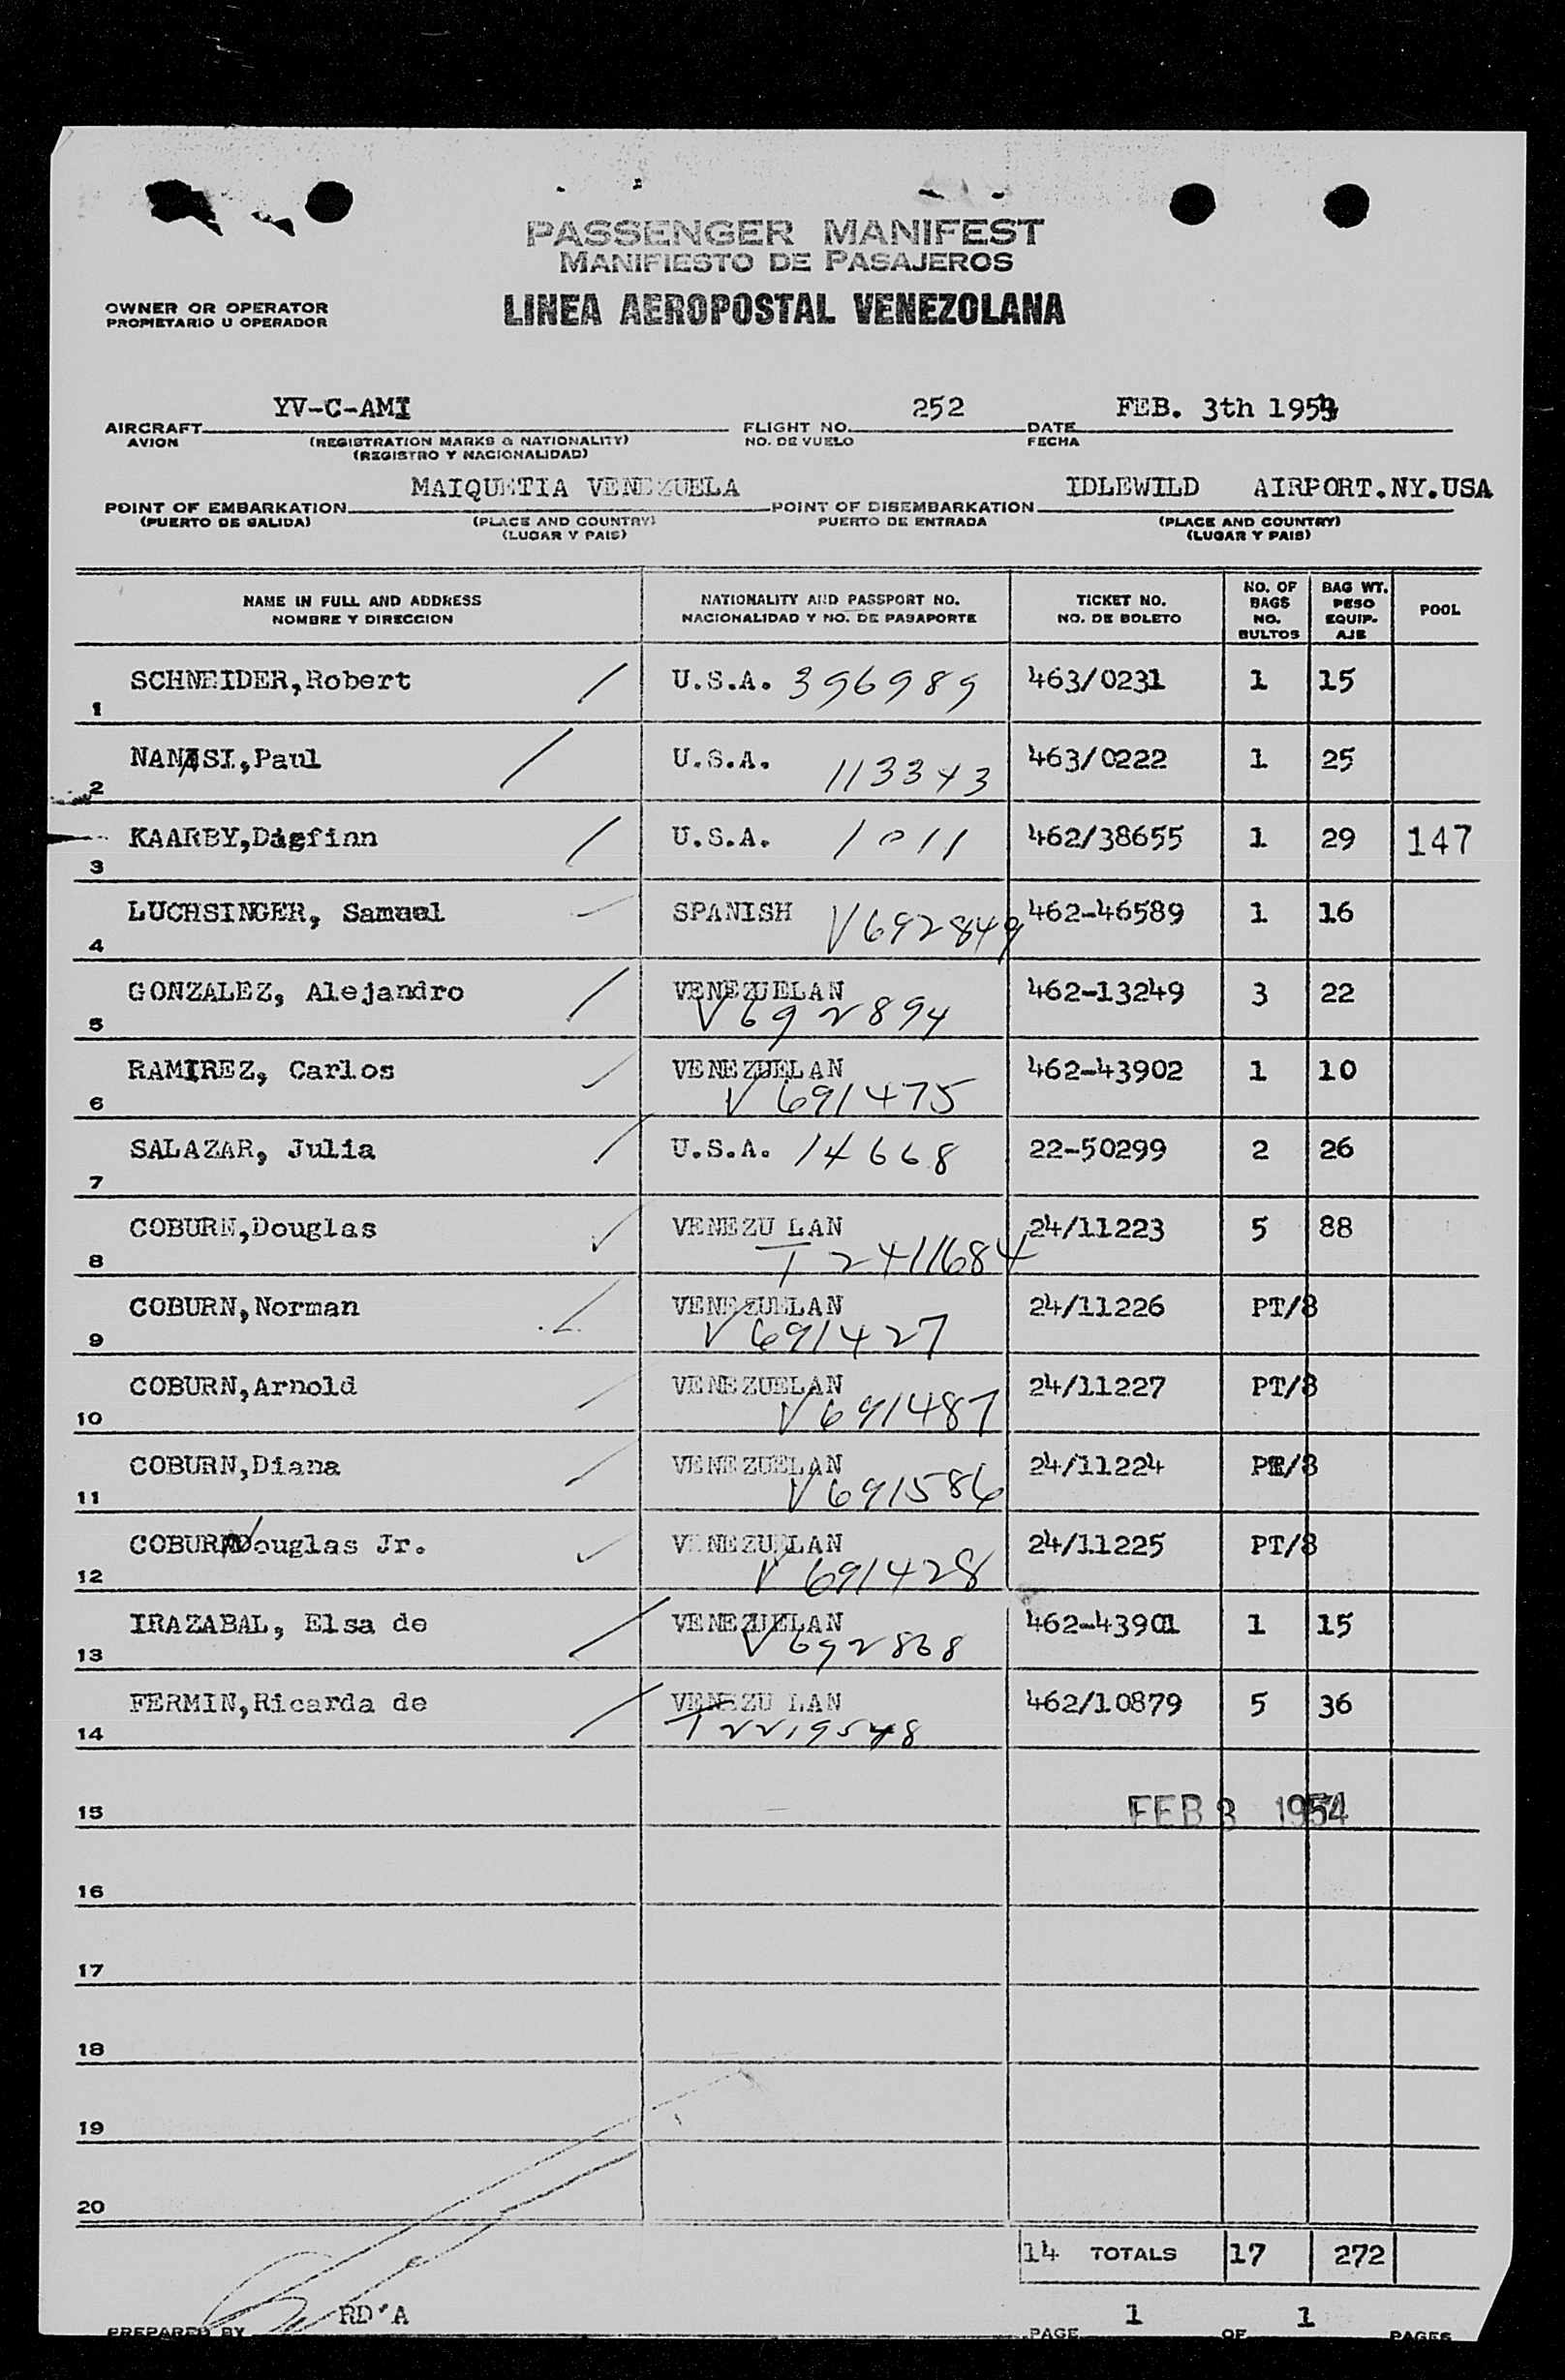 PASSENGER MANIFEST
MANIFIESTO DE PASAJEROS
OWNER OR OPERATOR
PROPIETARIO U OPERADOR
LINEA AEROPOSTAL VENEZOLANA
AIRCRAFT YV-C-AMI FLIGHT NO. 252 DATE FEB. 3th 1954
AVION (REGISTRATION MARKS & NATIONALITY) NO. DE VUELO FECHA
(REGISTRO Y NACIONALIDAD)
POINT OF EMBARKATION MAIQUETIA VENEZUELA POINT OF DISEMBARKATION IDLEWILD AIRPORT.NY.USA
(PUERTO DE SALIDA) (PLACE AND COUNTRY) PUERTO DE ENTRADA (PLACE AND COUNTRY)
(LUGAR Y PAIS) (LUGAR Y PAIS)
NAME IN FULL AND ADDRESS NATIONALITY AND PASSPORT NO. TICKET NO. NO. OF BAGS BAG WT. POOL
NOMBRE Y DIRECCION NACIONALIDAD Y NO. DE PASAPORTE NO. DE BOLETO NO. BULTOS PESO EQUIP-AJE
1 SCHNEIDER,Robert U.S.A. 396989 463/0231 1 15
2 NANASI,Paul U.S.A. 113343 463/0222 1 25
3 KAARBY,Dagfinn U.S.A. 1011 462/38655 1 29 147
4 LUCHSINGER, Samuel SPANISH V692849 462-46589 1 16
5 GONZALEZ, Alejandro VENEZUELAN V692894 462-13249 3 22
6 RAMIREZ, Carlos VENEZUELAN V691475 462-43902 1 10
7 SALAZAR, Julia U.S.A. 14668 22-50299 2 26
8 COBURN,Douglas VENEZU LAN T2411684 24/11223 5 88
9 COBURN,Norman VENEZUELAN V691427 24/11226 PT/8
10 COBURN,Arnold VENEZUELAN V691487 24/11227 PT/8
11 COBURN,Diana VENEZUELAN V691586 24/11224 PT/8
12 COBURN Douglas Jr. VENEZUELAN V691428 24/11225 PT/8
13 IRAZABAL, Elsa de VENEZUELAN V692868 462-43901 1 15
14 FERMIN,Ricarda de VENEZU LAN T2219548 462/10879 5 36
15 FEB 3 1954
16
17
18
19
20
14 TOTALS 17 272
PREPARED BY RD'A PAGE 1 OF 1 PAGES